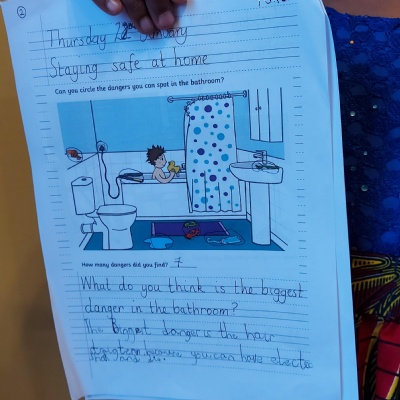 2
Thursday 12th January
Staying safe at home
Can you circle the dangers you can spot in the bathroom?
How many dangers did you find? 7
What do you think is the biggest
danger in the bathroom?
The Biggest danger is the hair
because you can have electo